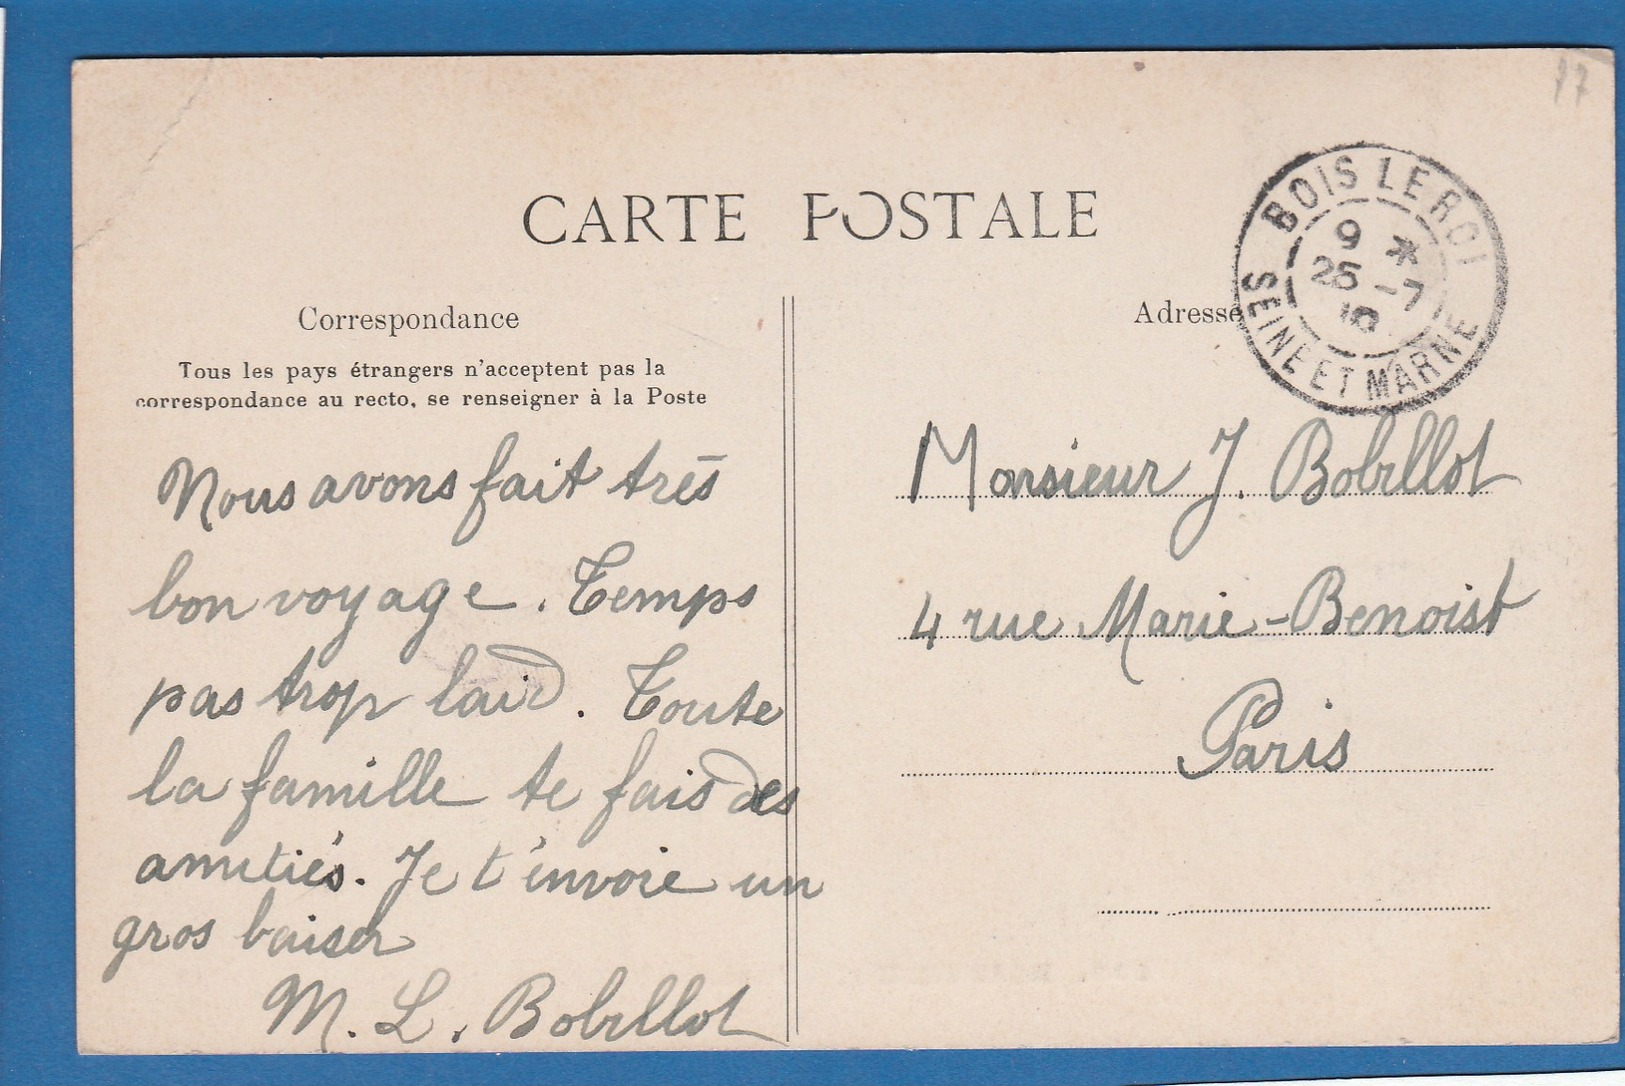 77
CARTE POSTALE
BOIS LE ROI
9 *
25 -7
10
SEINE ET MARNE
Correspondance
Adresse
Tous les pays étrangers n'acceptent pas la
correspondance au recto, se renseigner à la Poste
Nous avons fait très
bon voyage. Temps
pas trop laid. Toute
la famille te fais des
amitiés. Je t'envoie un
gros baiser
M. L. Bobillot
Monsieur J. Bobillot
4 rue Marie-Benoist
Paris